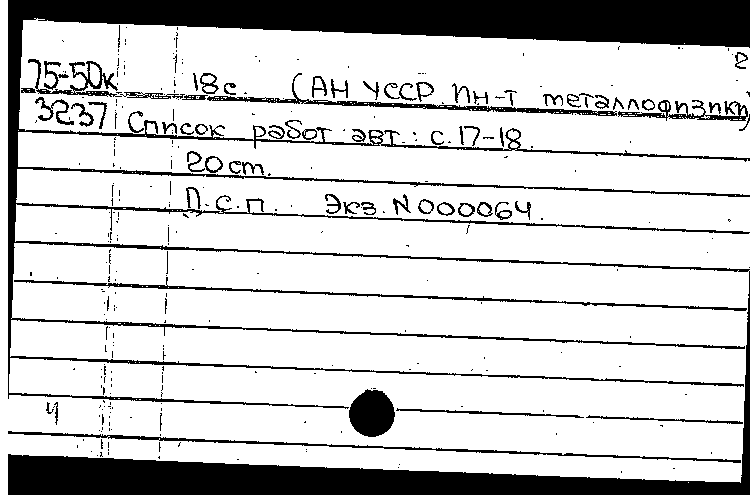 2
75-50к 18 с. (АН УССР Ин-т металлофизики)
3237 Список работ авт.: с. 17-18.
20 cm.
П.с.п. Экз. N 000064.
ч